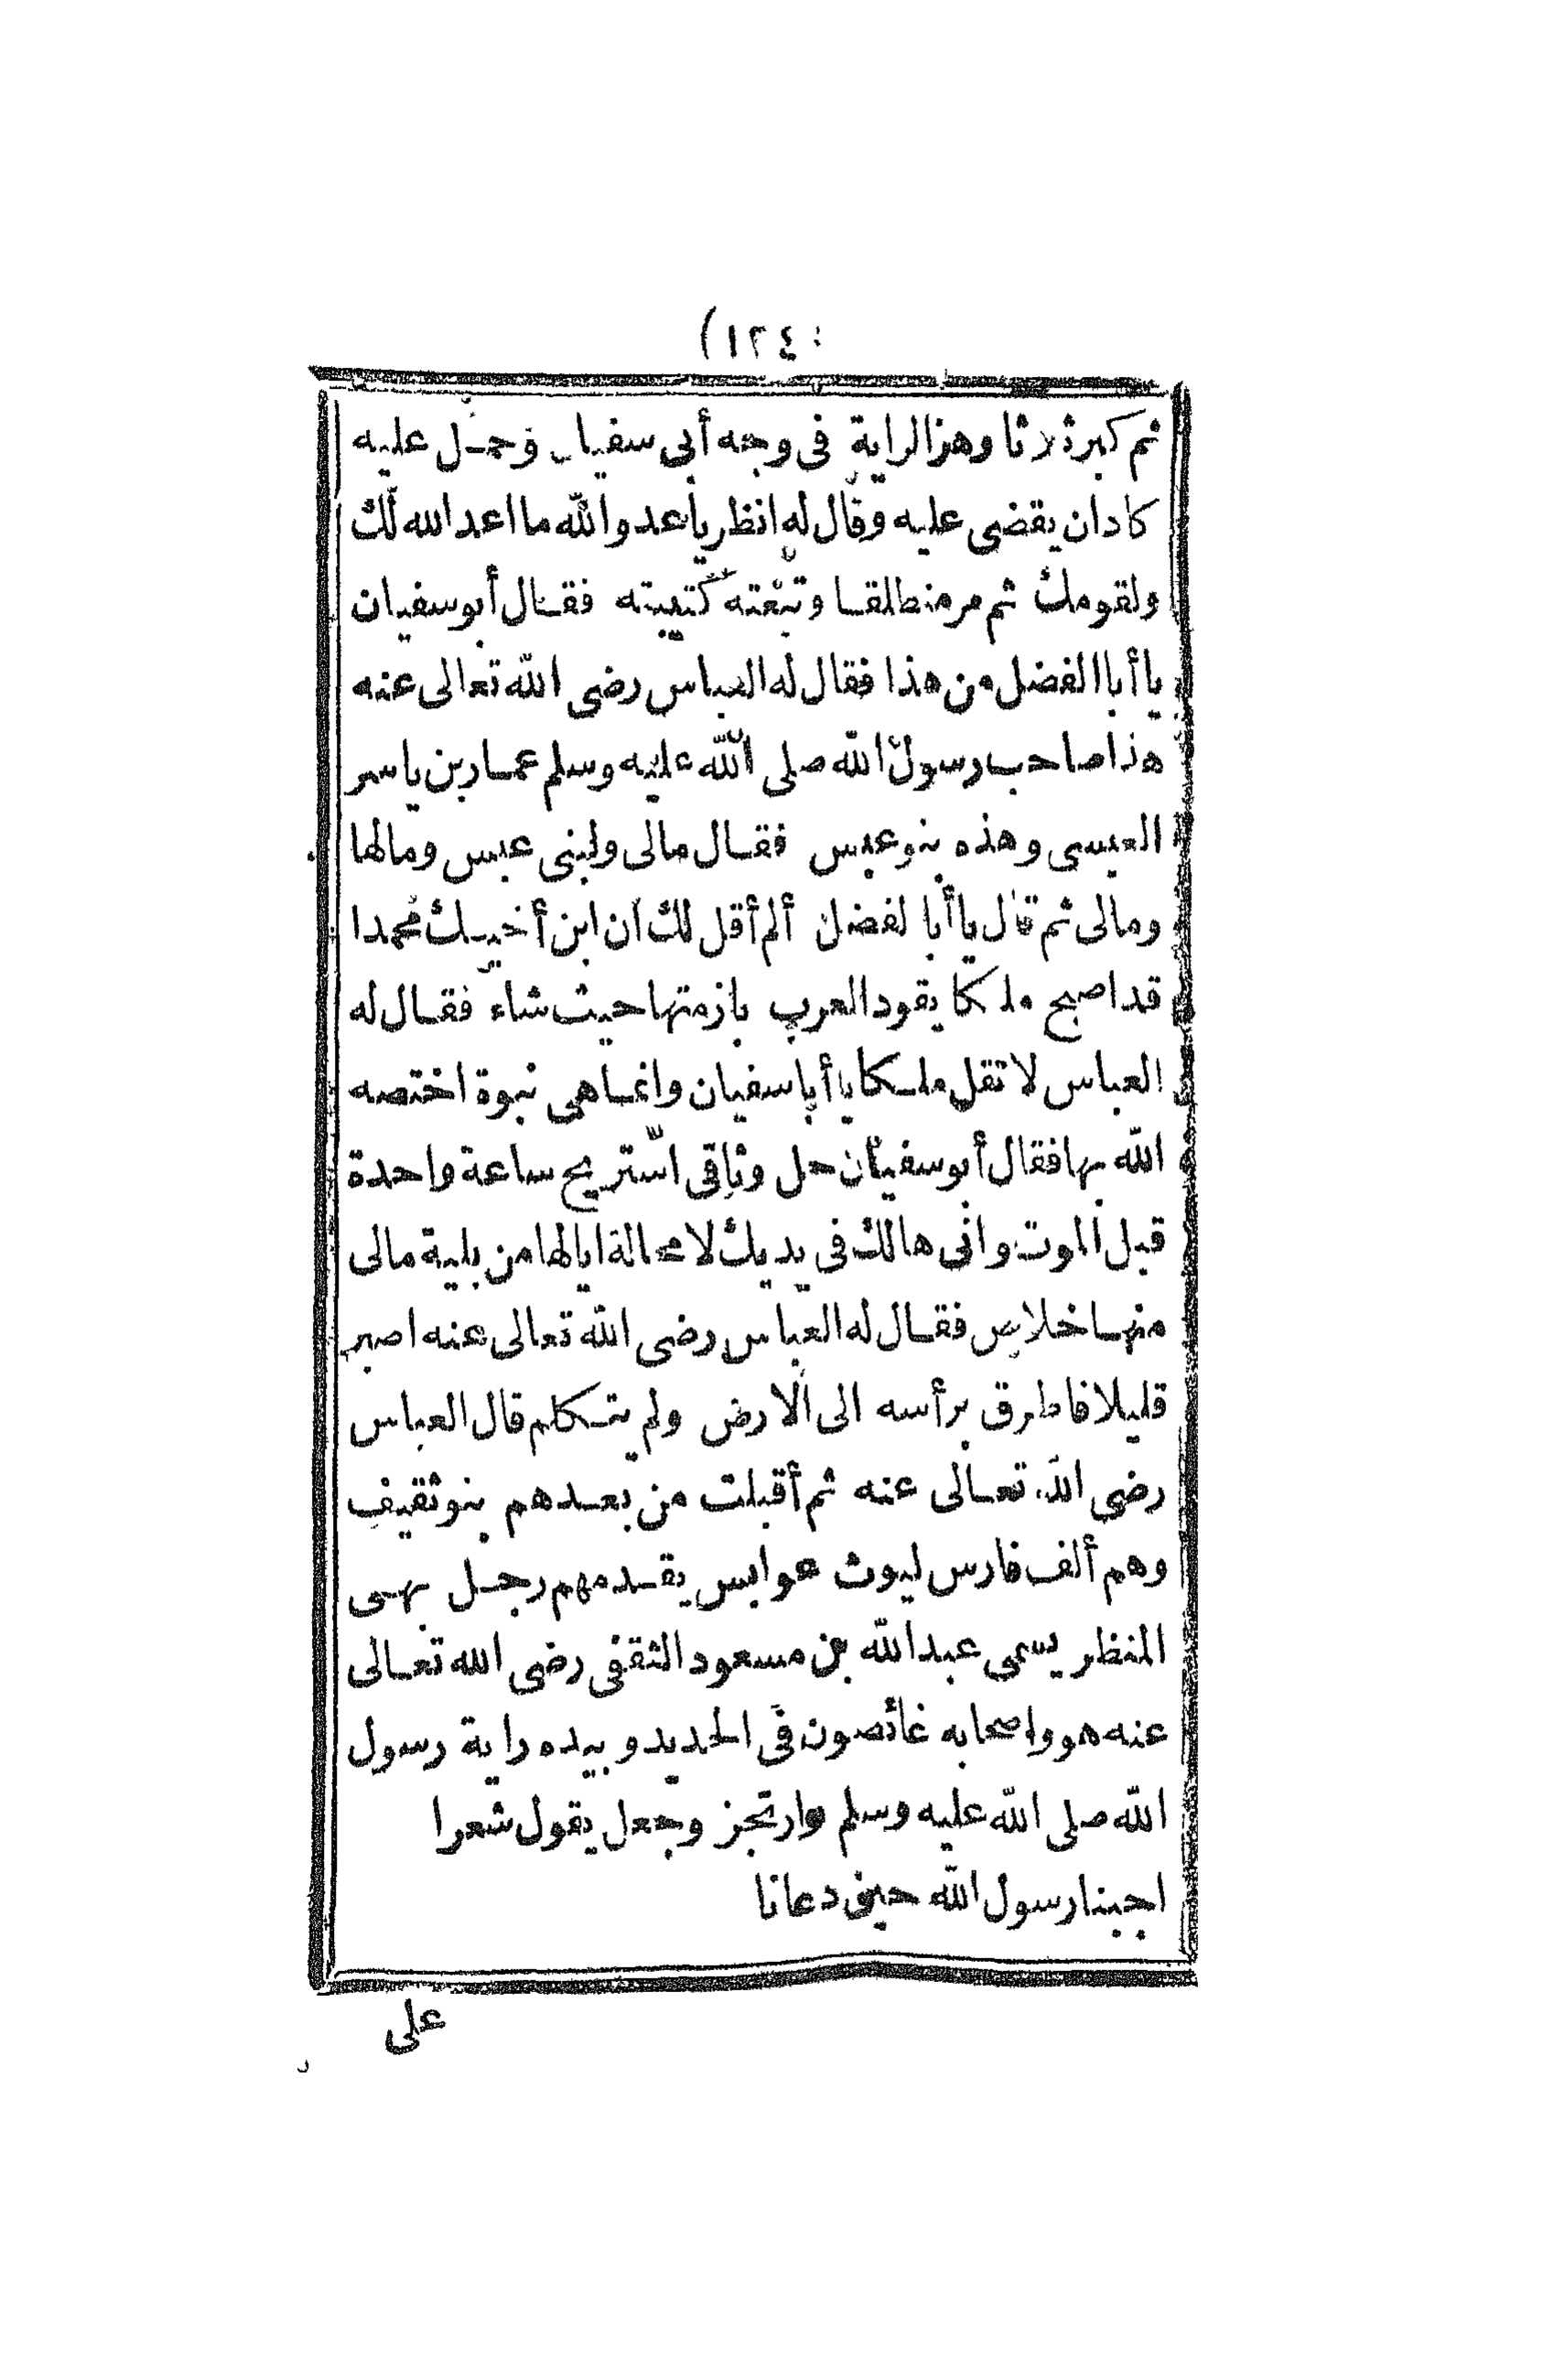 (١٢٤)
ثم كبر ثلاثا وهز الراية في وجه أبي سفيان وحمل عليه
كادان يقضى عليه وقال له انظر يا عدو الله ما اعد الله لك
ولقومك ثم مر منطلقا وتبعته كتيبته فقال أبو سفيان
يا أبا الفضل من هذا فقال له العباس رضى الله تعالى عنه
هذا صاحب رسول الله صلى الله عليه وسلم عمار بن ياسر
العبسى وهذه بنو عبس فقال مالى ولبنى عبس ومالها
ومالى ثم قال يا أبا لفضل ألم أقل لك ان ابن أخيك محمدا
قد اصبح ملكا يقود العرب بازمتها حيث شاء فقال له
العباس لا تقل ملكا يا أبا سفيان وانما هى نبوة اختصه
الله بها فقال أبو سفيان حل وثاقى استريح ساعة واحدة
قبل الموت وانى هالك فى يديك لا محالة ايالها من بلية مالى
منها خلاص فقال له العباس رضى الله تعالى عنه اصبر
قليلا فاطرق برأسه الى الارض ولم يتكلم قال العباس
رضى الله تعالى عنه ثم أقبلت من بعدهم بنو ثقيف
وهم ألف فارس ليوث عوابس يقدمهم رجل بهى
المنظر يسمى عبد الله بن مسعود الثقفى رضى الله تعالى
عنه هو واصحابه غائصون فى الحديد وبيده راية رسول
الله صلى الله عليه وسلم وارتجز وجعل يقول شعرا
اجبنا رسول الله حين دعانا
على